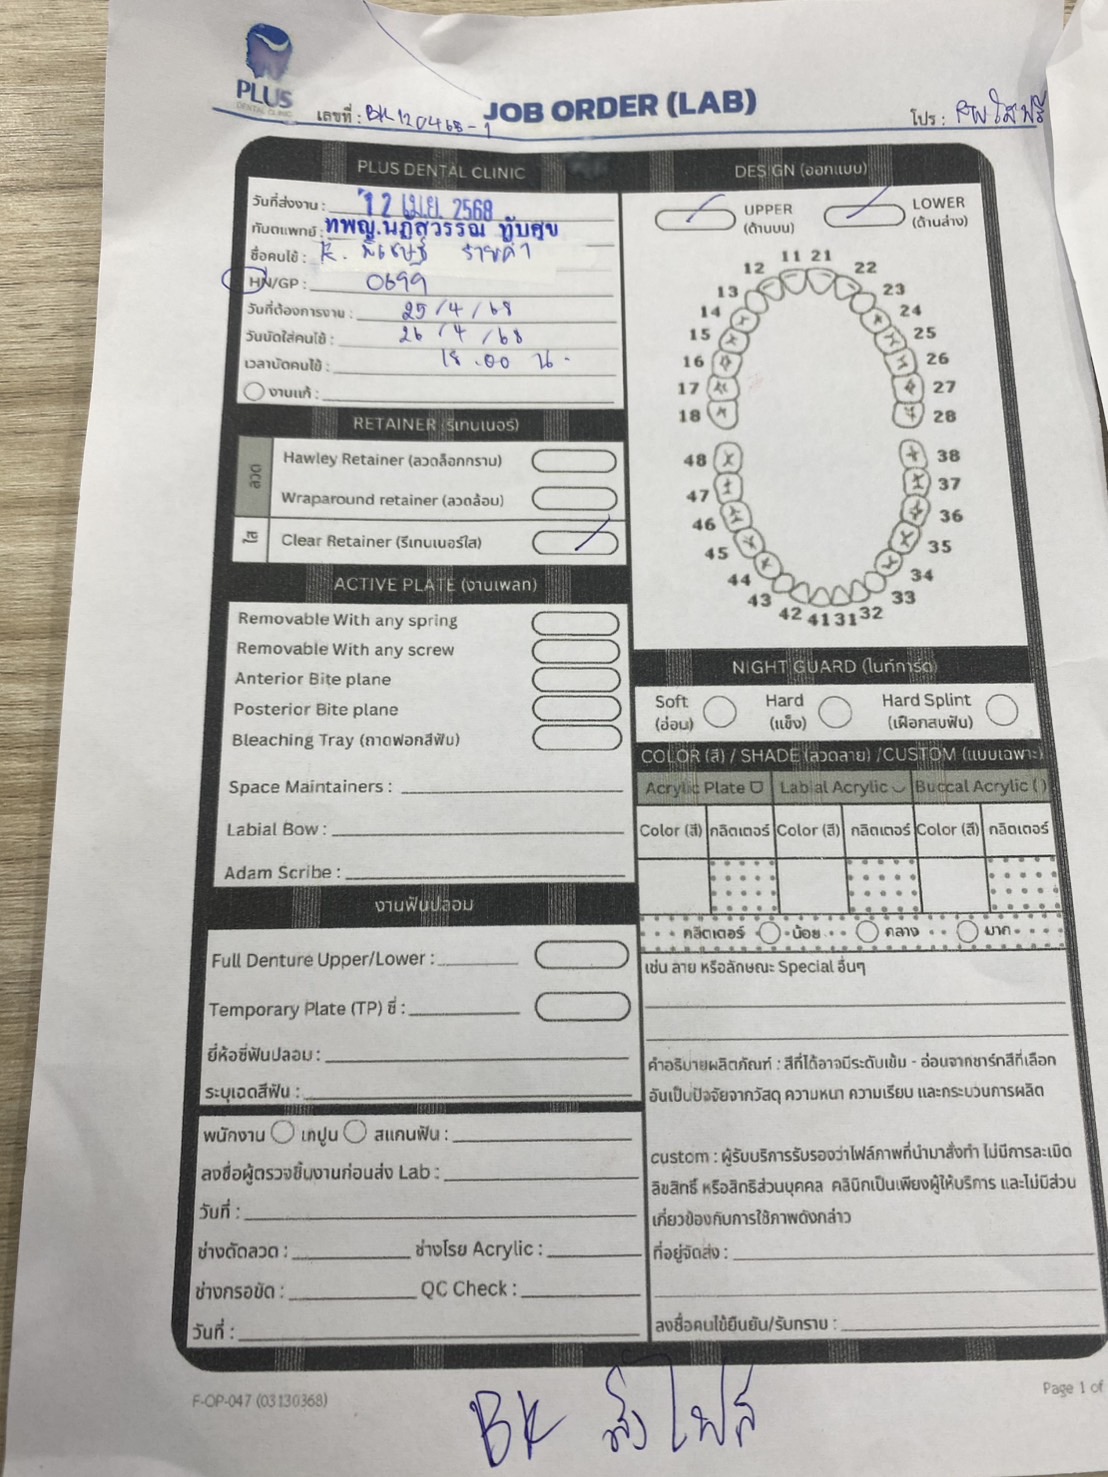 PLUS
DENTAL CLINIC
เลขที่ : BK120468-1
JOB ORDER (LAB)
โปร : ใสฟรี
PLUS DENTAL CLINIC
วันที่ส่งงาน : 12 เม.ย. 2568
ทันตแพทย์ : ทพญ.นภัสวรรณ ทับศุข
ชื่อคนไข้ : K.
HN/GP : 0699
วันที่ต้องการงาน : 25/4/68
วันนัดใส่คนไข้ : 26/4/68
เวลานัดคนไข้ : 18.00 น.
งานแก้ :
RETAINER (รีเทนเนอร์)
ลวด
Hawley Retainer (ลวดล็อกกราม)
Wraparound retainer (ลวดล้อม)
ใส
Clear Retainer (รีเทนเนอร์ใส)
ACTIVE PLATE (งานเพลท)
Removable With any spring
Removable With any screw
Anterior Bite plane
Posterior Bite plane
Bleaching Tray (ถาดฟอกสีฟัน)
Space Maintainers :
Labial Bow :
Adam Scribe :
งานฟันปลอม
Full Denture Upper/Lower :
Temporary Plate (TP) ซี่ :
ยี่ห้อซี่ฟันปลอม :
ระบุเฉดสีฟัน :
พนักงาน เทปูน สแกนฟัน :
ลงชื่อผู้ตรวจชิ้นงานก่อนส่ง Lab :
วันที่ :
ช่างดัดลวด : ช่างโรย Acrylic :
ช่างกรอขัด : QC Check :
วันที่ :
DESIGN (ออกแบบ)
UPPER
(ด้านบน)
LOWER
(ด้านล่าง)
11 21
12 22
13 23
14 24
15 25
16 26
17 27
18 28
48 38
47 37
46 36
45 35
44 34
43 33
42 41 31 32
NIGHT GUARD (ไนท์การ์ด)
Soft
(อ่อน)
Hard
(แข็ง)
Hard Splint
(เฝือกสบฟัน)
COLOR (สี) / SHADE (ลวดลาย) /CUSTOM (แบบเฉพาะ)
Acrylic Plate Labial Acrylic Buccal Acrylic ( )
Color (สี) กลิตเตอร์ Color (สี) กลิตเตอร์ Color (สี) กลิตเตอร์
กลิตเตอร์ น้อย กลาง มาก
เช่น ลาย หรือลักษณะ Special อื่นๆ
คำอธิบายผลิตภัณฑ์ : สีที่ได้อาจมีระดับเข้ม - อ่อนจากชาร์ทสีที่เลือก
อันเป็นปัจจัยจากวัสดุ ความหนา ความเรียบ และกระบวนการผลิต
custom : ผู้รับบริการรับรองว่าไฟล์ภาพที่นำมาสั่งทำ ไม่มีการละเมิด
ลิขสิทธิ์ หรือสิทธิส่วนบุคคล คลินิกเป็นเพียงผู้ให้บริการ และไม่มีส่วน
เกี่ยวข้องกับการใช้ภาพดังกล่าว
ที่อยู่จัดส่ง :
ลงชื่อคนไข้ยืนยัน/รับทราบ :
F-OP-047 (03130368)
Page 1 of
BK ส่งไฟล์